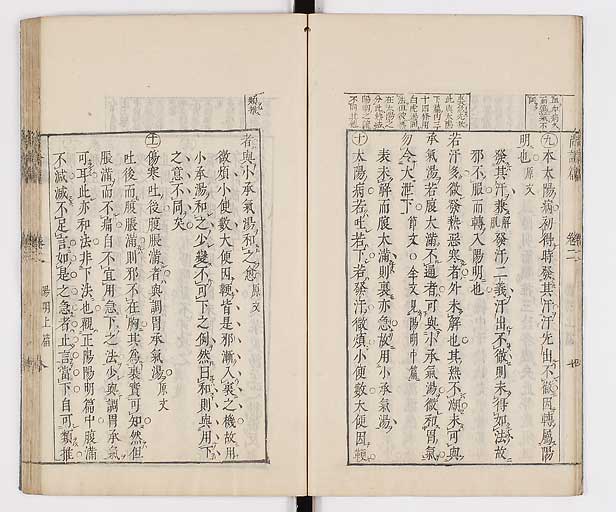 尚論篇 卷二
九 本太陽病初得時發其汗汗先出不徹因轉屬陽
明也 原文
發其汗兼解肌發汗二義汗出不徹則未得如法故
邪不服而轉入陽明也
若汗多微發熱惡寒者外未解也其熱不潮未可與
承氣湯若腹大滿不通者可與小承氣湯微和胃氣
勿令大泄下 節文〇全文見陽明中篇
表未解而腹大滿則裏亦急故用小承氣湯
十 太陽病若吐若下若發汗微煩小便數大便因鞕
者與小承氣湯和之愈 原文
微煩小便數大便因鞕皆是邪漸入裏之機故用
小承湯和之少變不可下之例然曰和則與用下
之意不同矣
十一 傷寒吐後腹脹滿者與調胃承氣湯 原文
吐後而腹脹滿則邪不在胸其為裏實可知然但
脹滿而不痛自不宜用急下之法少與調胃承氣
可耳此亦和法非下法也觀正陽陽明篇中腹滿
不減減不足言如是之急者止言當下自可類推
陽明上篇